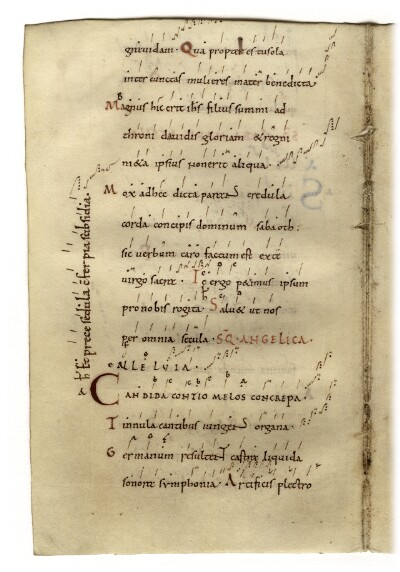 grauidam. Qua propter es tu sola
inter cunctas mulieres mater benedicta
Magnus hic erit ihs filius summi ad
throni dauidis gloriam & regni
m&a ipsius non erit aliqua.
Mox adhec dicta paret credula
corda concipis dominum sabaoth:
sic verbum caro factum est ex te
uirgo sacra. Te ergo p&imus ipsum
pro nobis rogita. Salu& ut nos
per omnia secula. SQ ANGELICA.
ALLELUIA.
CANDIDA CONTIO MELOS CONCREPA.
Tinnula cantibus iungens organa.
Germanum resultet castra liquida
sonore symphonia. Artificis plectro
prece sedula